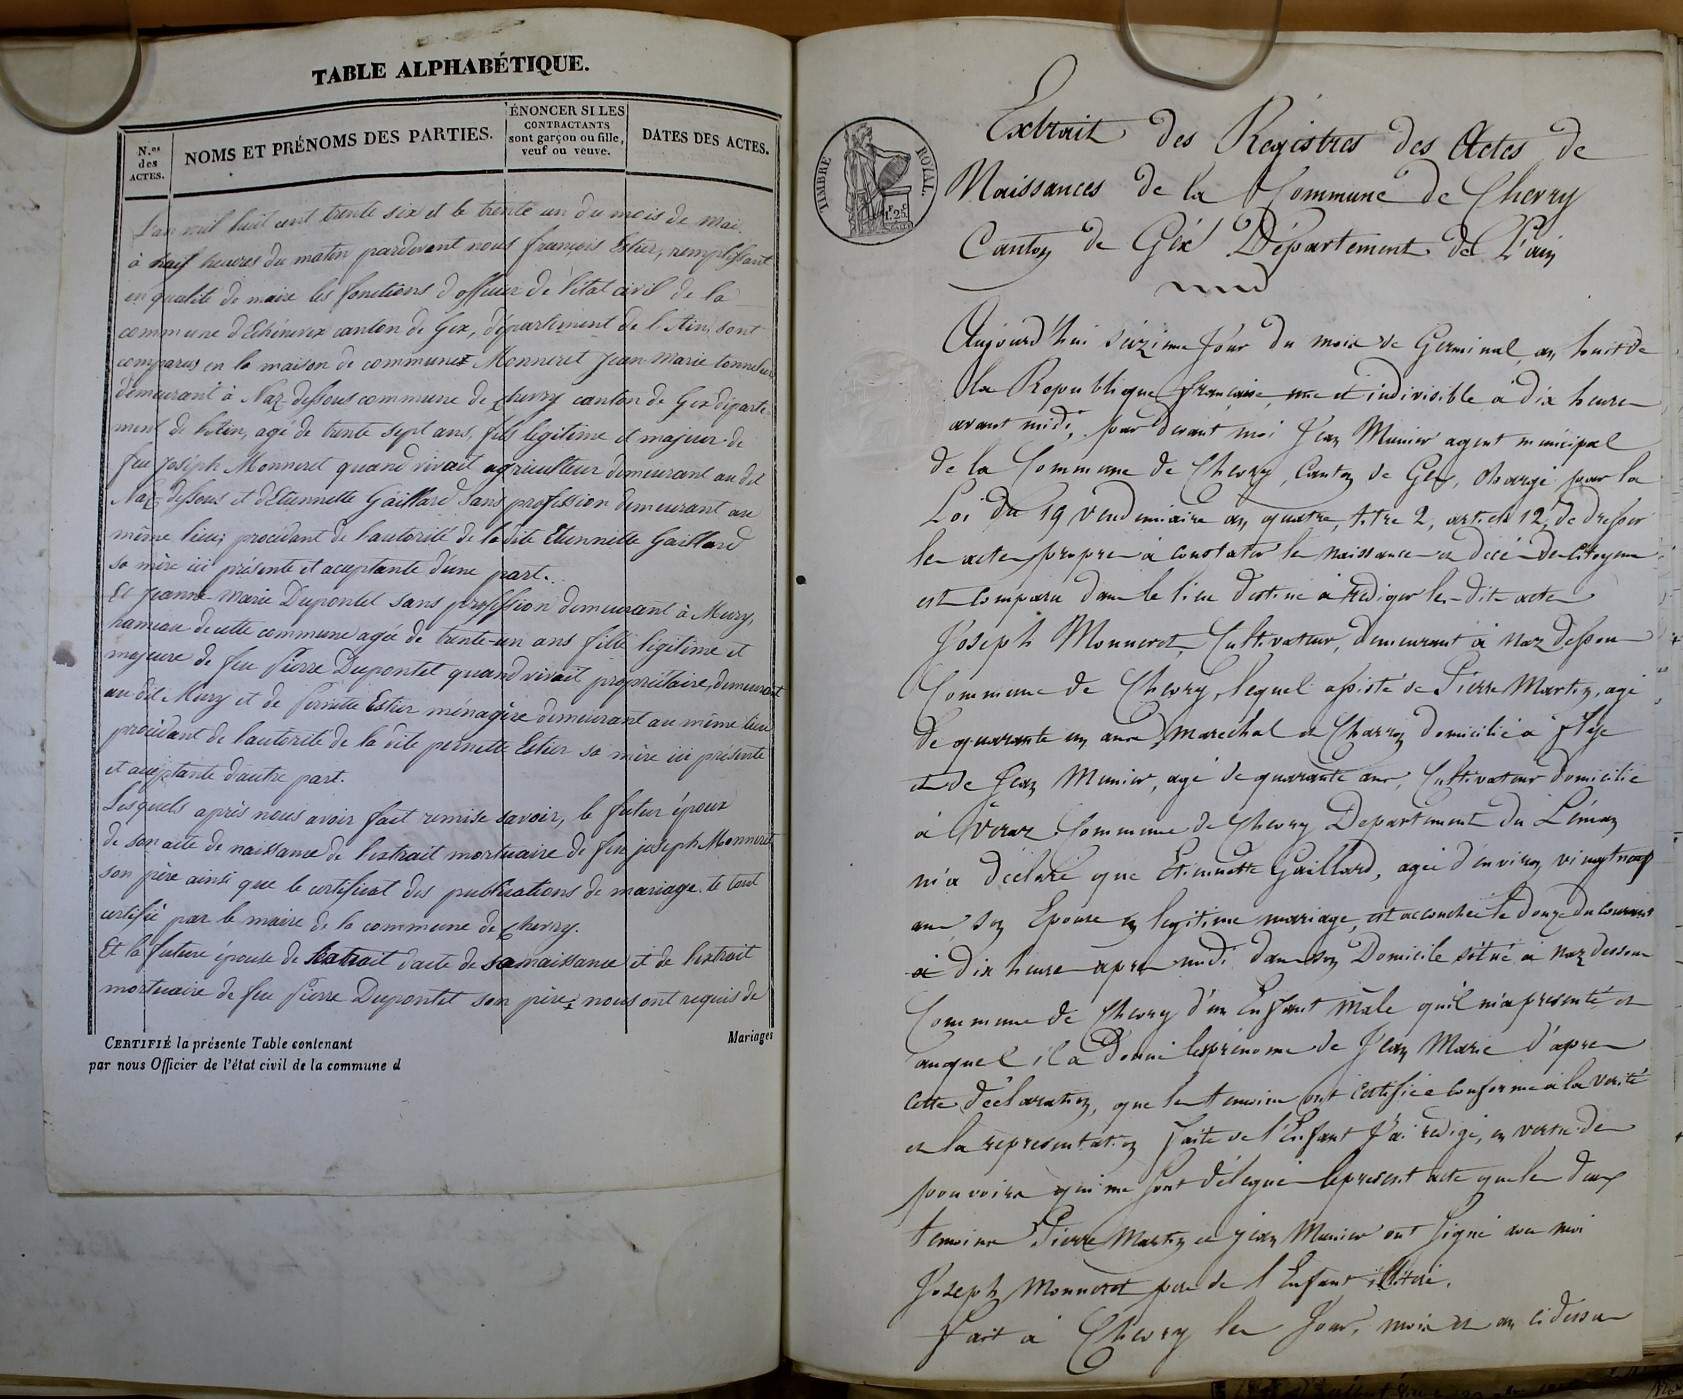 TABLE ALPHABÉTIQUE.
N.os des ACTES.
NOMS ET PRÉNOMS DES PARTIES.
ÉNONCER SI LES CONTRACTANTS sont garçon ou fille, veuf ou veuve.
DATES DES ACTES.
L'an mil huit cent trente six et le trente un du mois de mai,
à neuf heures du matin pardevant nous françois Estier, remplissant
en qualité de maire les fonctions d'officier de l'état civil de la
commune d'Echenevex canton de Gex, département de l'Ain, sont
comparus en la maison de commune Monneret Jean-Marie tonnelier
demeurant à Naz-dessous commune de chevry canton de Gex départe-
ment de l'Ain, agé de trente sept ans, fils légitime et majeur de
feu joseph Monneret quand vivait agriculteur demeurant au dit
Naz-dessous et d'Etiennette Gaillard sans profession demeurant au
même lieu; procédant de l'autorité de la dite Etiennette Gaillard
sa mère ici présente et aceptante d'une part.
Et jeanne marie Dupontet sans profession demeurant à Mury,
hameau de cette commune agée de trente-un ans fille légitime et
majeure de feu Pierre Dupontet quand vivait propriétaire, demeurant
au dit Mury et de pernette Estier ménagère demeurant au même lieu
procédant de l'autorité de la dite pernette Estier sa mère ici présente
et aceptante d'autre part.
Lesquels après nous avoir fait remise savoir, le futur époux
de son acte de naissance de l'extrait mortuaire de feu joseph Monneret
son père ainsi que le certificat des publications de mariage. le tout
certifié par le maire de la commune de chevry.
Et la future épouse de l'extrait d'acte de sa naissance et de l'extrait
mortuaire de feu Pierre Dupontet son père; nous ont requis de
CERTIFIÉ la présente Table contenant
Mariages
par nous Officier de l'état civil de la commune d
TIMBRE ROYAL.
1.F 25.C
Extrait des Registres des Actes de
Naissances de la Commune de Chevry
Canton de Gex Département de l'ain
Aujourd'hui seizième Jour du mois de Germinal an huit de
la Republique française une et indivisible à dix heures
avant midi, par devant moi Jean Munier agent municipal
de la Commune de Chevry, Canton de Gex, chargé par la
Loi du 19 Vendemiaire an quatre, titre 2, article 12, de dresser
les actes propres à constater les naissances et décès des Citoyens
est comparu dans le lieu destiné à rediger les dits actes
Joseph Monneret, Cultivateur, demeurant à Naz dessous
Commune de Chevry, lequel assisté de Pierre Martin, agé
de quarante un ans, Marechal et Charron domicilié à
et de Jean Munier, agé de quarante ans, Cultivateur domicilié
à Veraz Commune de Chevry Departement du Léman
m'a déclaré que Etiennette Gaillard, agée d'environ vingt neuf
ans son Epouse en legitime mariage, est accouchée le douze du courant
à dix heures apres midi dans son Domicile situé à Naz dessous
Commune de Chevry d'un Enfant mâle qu'il m'a presenté et
auquel il a donné les prénoms de Jean Marie d'apres
cette déclaration, que les temoins ont certifiée conforme à la verité
et la representation faite de l'Enfant J'ai redigé, en vertu des
pouvoirs qui me sont délégués le present acte que les deux
temoins Pierre Martin et jean Munier ont signé avec moi
Joseph Monneret pere de l'Enfant illitéré.
Fait à Chevry les Jour, mois et an ci dessus